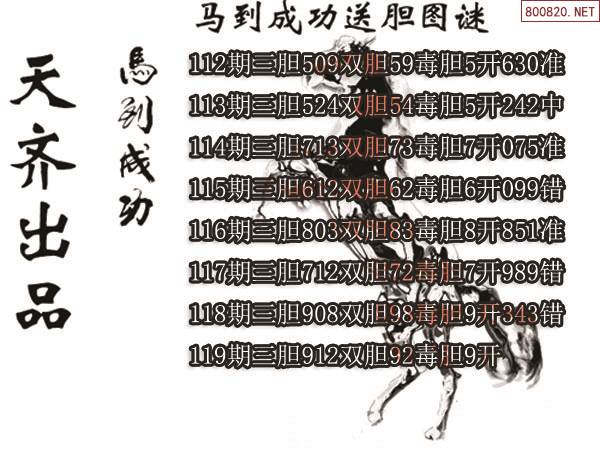 马到成功送胆图谜
800820.NET
天齐出品
馬到成功
112期三胆509双胆59毒胆5开630准
113期三胆524双胆54毒胆5开242中
114期三胆713双胆73毒胆7开075准
115期三胆612双胆62毒胆6开099错
116期三胆803双胆83毒胆8开851准
117期三胆712双胆72毒胆7开989错
118期三胆908双胆98毒胆9开343错
119期三胆912双胆92毒胆9开